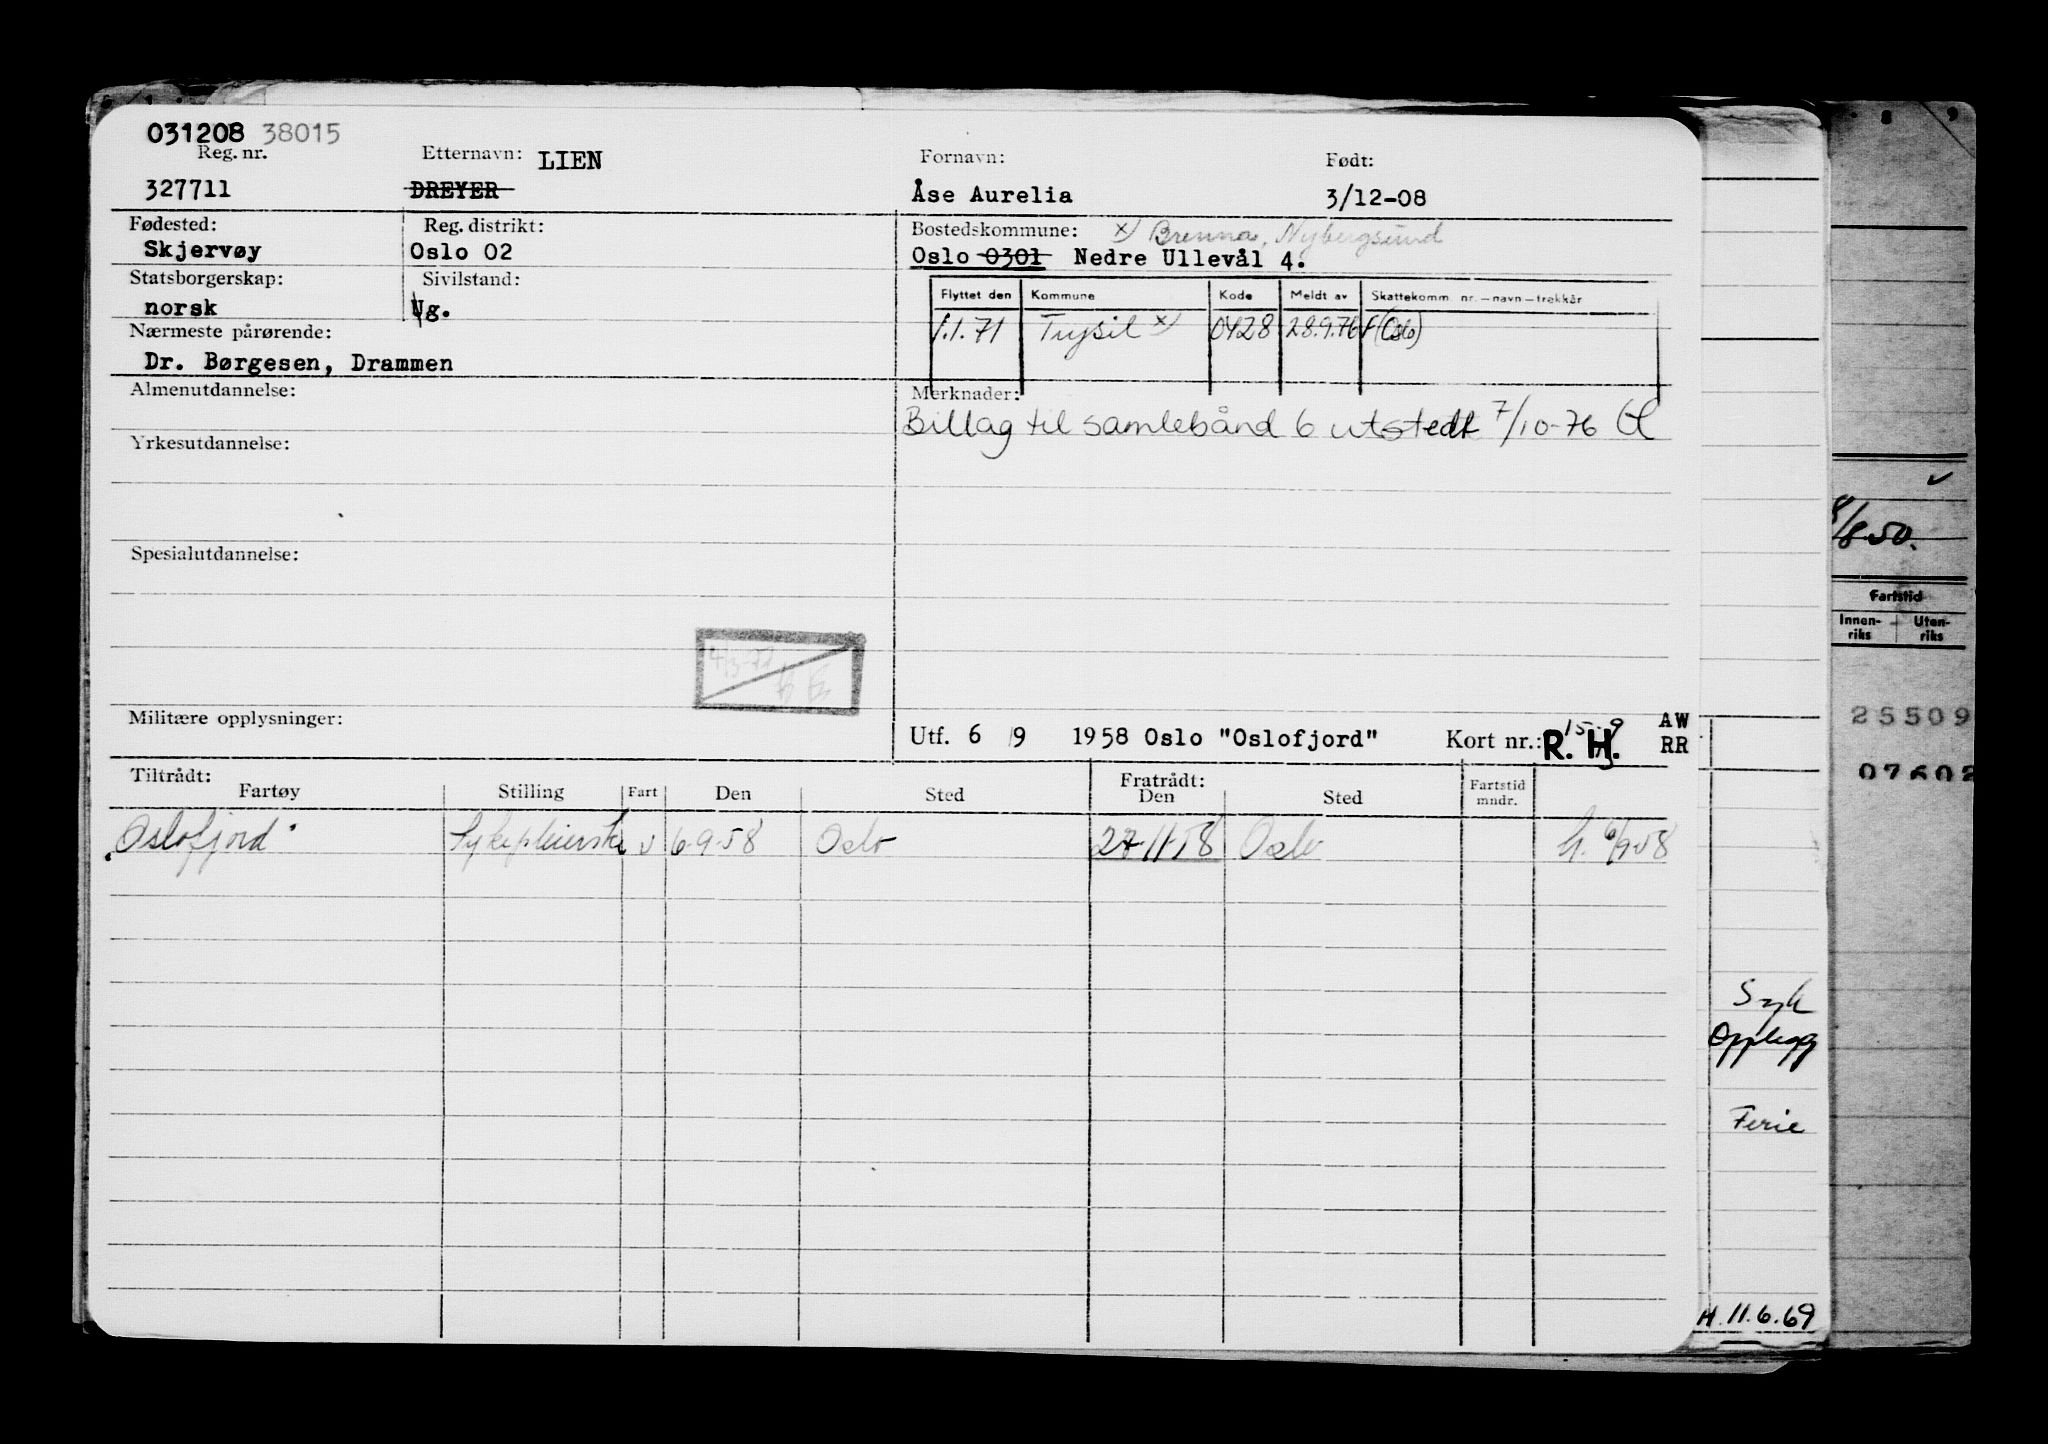 031208 38015
Reg. nr. Etternavn: LIEN Fornavn: Født:
327711 DREYER Åse Aurelia 3/12-08
Fødested: Reg. distrikt: Bostedskommune: x) Brenna, Nybergsund
Skjervøy Oslo 02 Oslo 0301 Nedre Ullevål 4.
Statsborgerskap: Sivilstand: Flyttet den Kommune Kode Meldt av Skattekomm. nr.—navn—trekkår
norsk Ug. 1.1.71 Trysil x) 0428 28.9.76 F (Oslo)
Nærmeste pårørende:
Dr. Børgesen, Drammen
Almenutdannelse: Merknader:
Billag til samlebånd 6 utstedt 7/10-76
Yrkesutdannelse:
Spesialutdannelse:
Militære opplysninger:
Utf. 6 /9 1958 Oslo "Oslofjord" Kort nr.: R. H. AW
RR
Tiltrådt: Fratrådt:
Fartøy Stilling Fart Den Sted Den Sted Fartstid
mndr.
"Oslofjord" Sykepleierske u 6-9-58 Oslo 27-11-58 Oslo 6/9-58
Syk
Opplegg
Ferie
H. 11.6.69
8 9
/8-50.
Fartstid
Innen-
riks
Uten-
riks
25509
07602